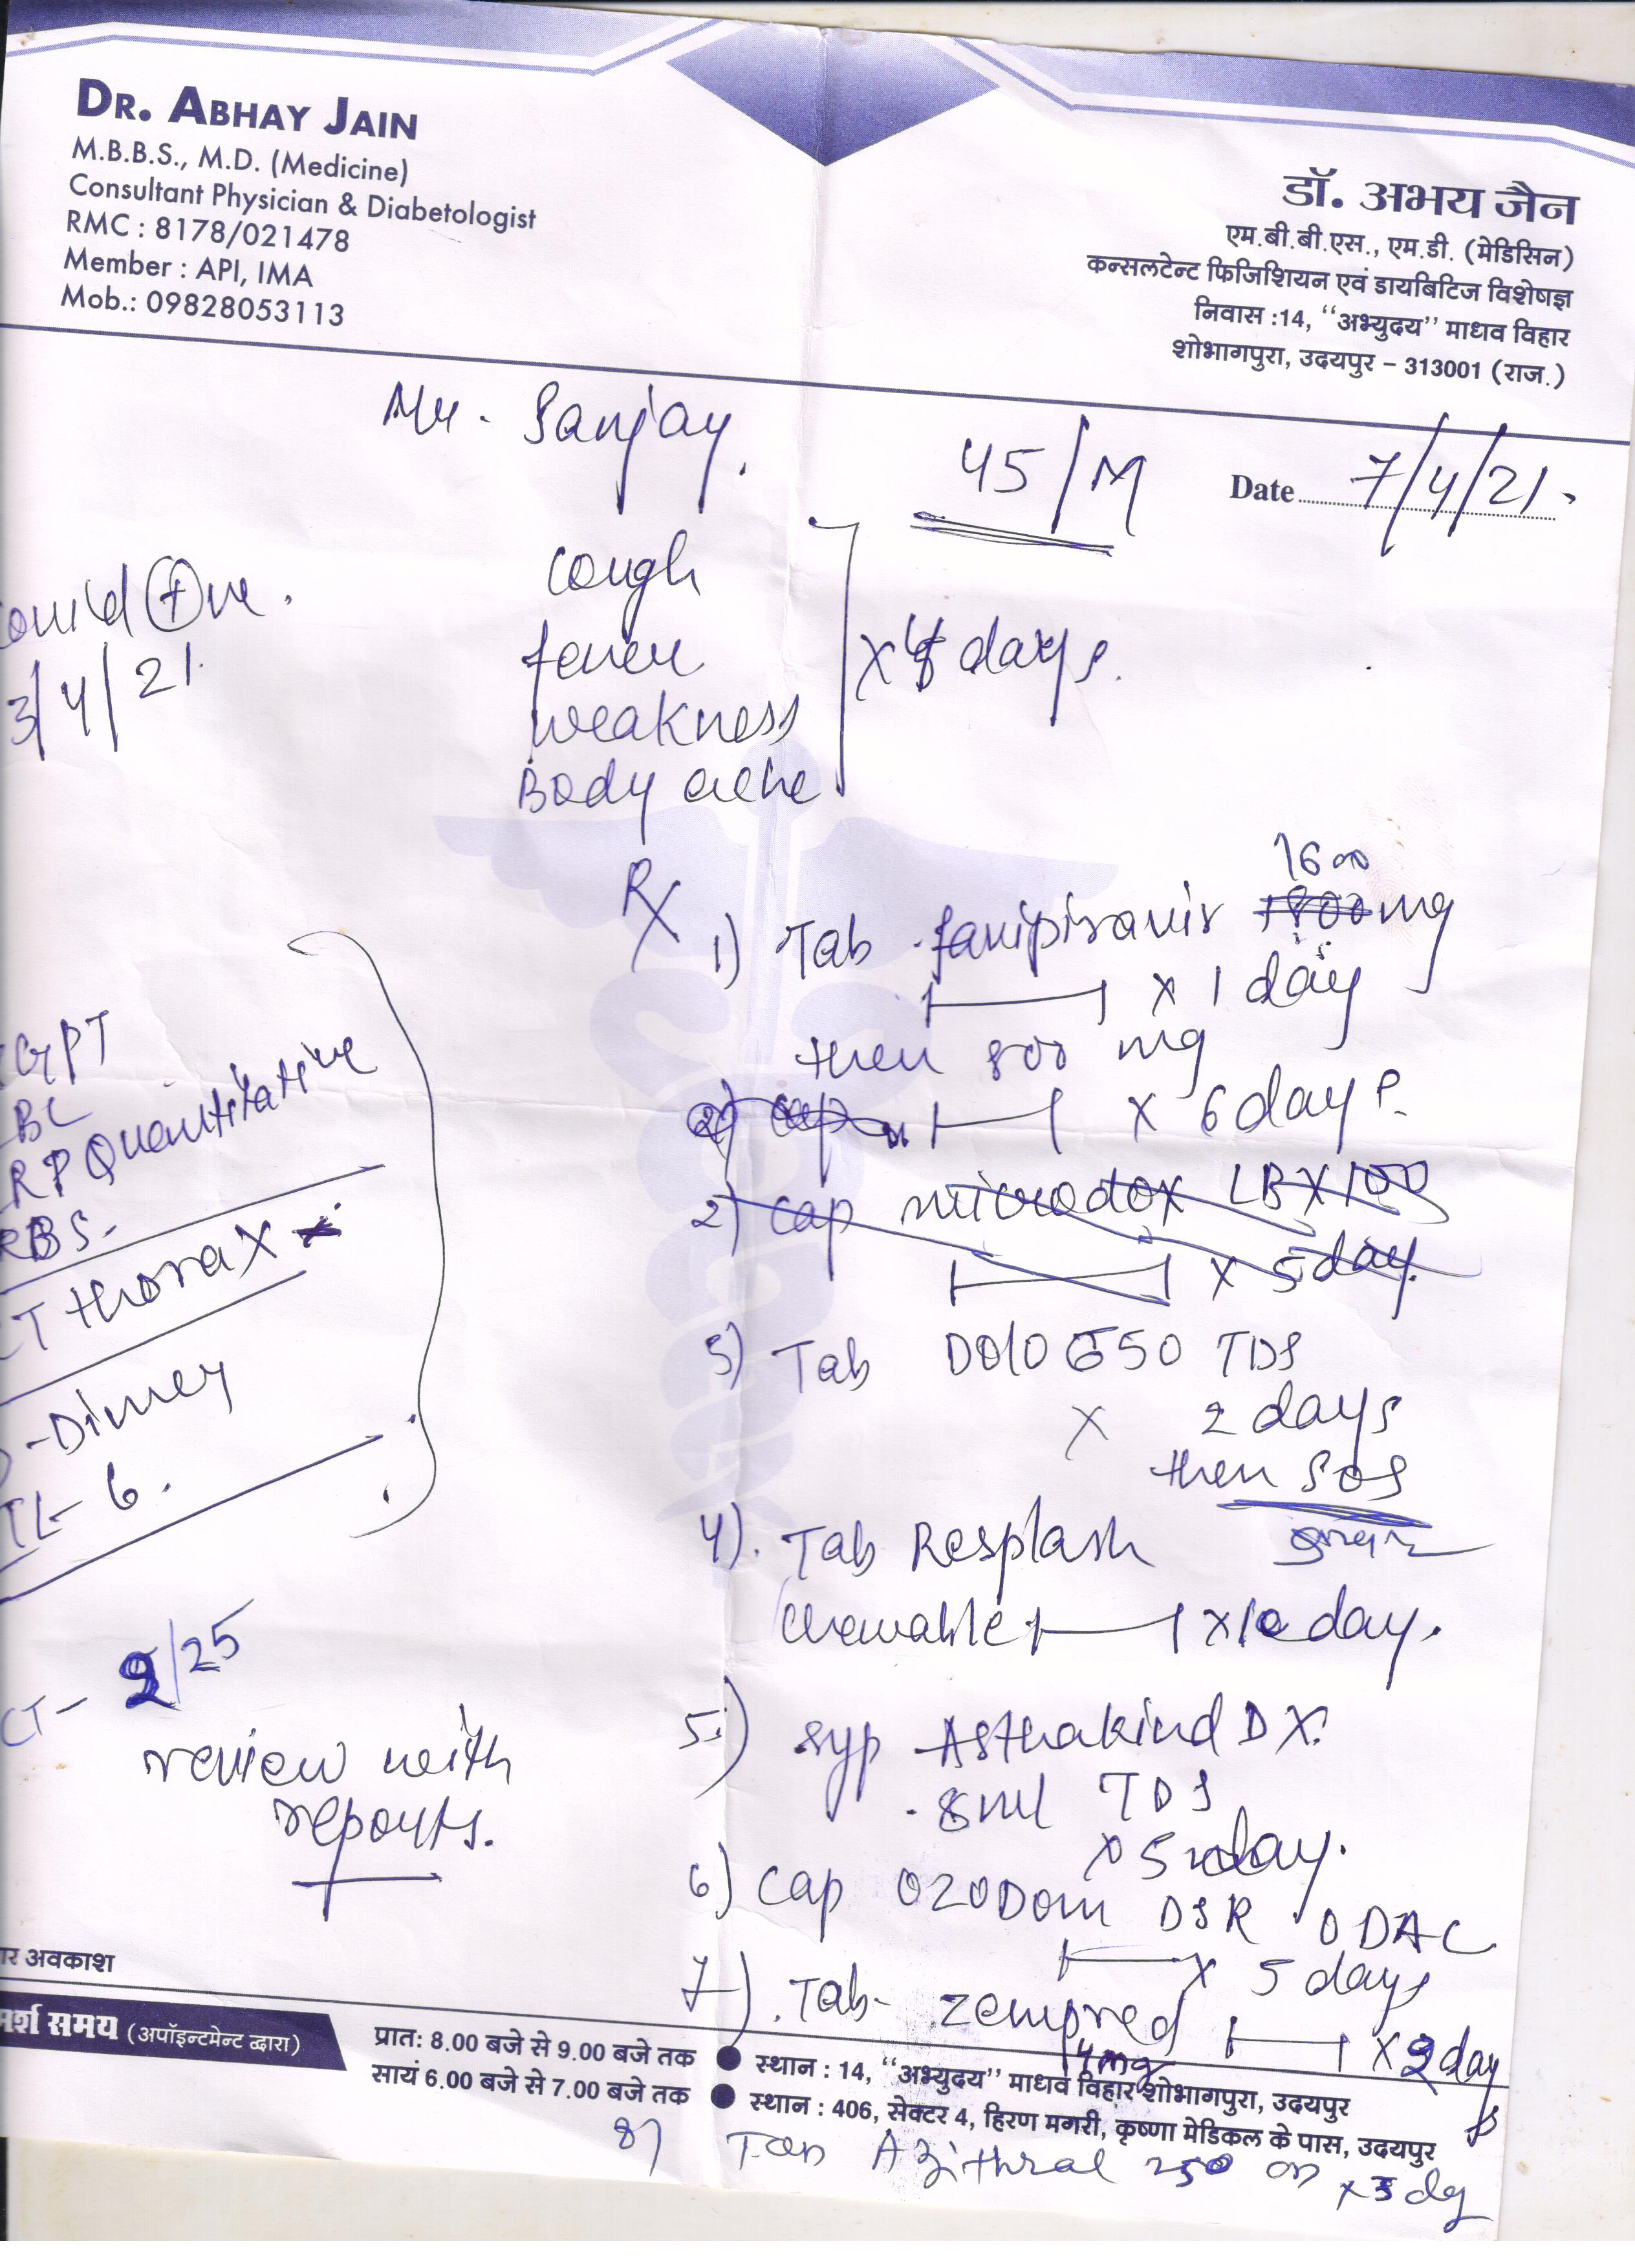 DR. ABHAY JAIN
M.B.B.S., M.D. (Medicine)
Consultant Physician & Diabetologist
RMC : 8178/021478
Member : API, IMA
Mob.: 09828053113
डॉ. अभय जैन
एम.बी.बी.एस., एम.डी. (मेडिसिन)
कन्सलटेन्ट फिजिशियन एवं डायबिटिज विशेषज्ञ
निवास :14, ‘‘अभ्युदय’’ माधव विहार
शोभागपुरा, उदयपुर – 313001 (राज.)
Mr. Sanjay.
45/M
Date 7/4/21.
ovid +ve.
3/4/21.
cough
fever
weakness
Body ache
days.
Rx
1) Tab favipiravir 1600 mg
x 1 day
then 800 mg
2) cap x 6 days.
2) cap microdox LBX 100
x 5 day.
3) Tab Dolo 650 TDS
x 2 days
then SOS
4). Tab Resplash
chewable x 10 day.
5.) syp Asthakind DX.
8ml TDS
x 5 day.
6) Cap OZODom DSR ODAC
x 5 days
7). Tab- zempred x 2 days
4mg
8) Tab Azithral 250 x 5 dy
GPT
BC
RP Quantitative
RBS-
CT thorax
-Dimer
IL-6.
CT- 9/25
review with
reports.
ार अवकाश
मर्श समय (अपॉइन्टमेन्ट द्वारा)
प्रात: 8.00 बजे से 9.00 बजे तक ● स्थान : 14, ‘‘अभ्युदय’’ माधव विहार शोभागपुरा, उदयपुर
सायं 6.00 बजे से 7.00 बजे तक ● स्थान : 406, सेक्टर 4, हिरण मगरी, कृष्णा मेडिकल के पास, उदयपुर